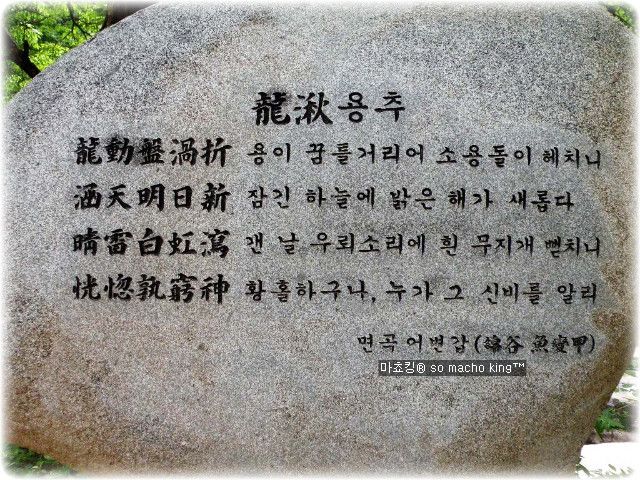 龍湫용추
龍動盤渦折 용이 꿈틀거리어 소용돌이 헤치니
涵天明日新 잠긴 하늘에 밝은 해가 새롭다
晴雷白虹瀉 갠 날 우뢰소리에 흰 무지개 뻗치니
恍惚孰窮神 황홀하구나, 누가 그 신비를 알리
면곡 어변갑 (綿谷 魚變甲)
마쵸킹® so macho king™